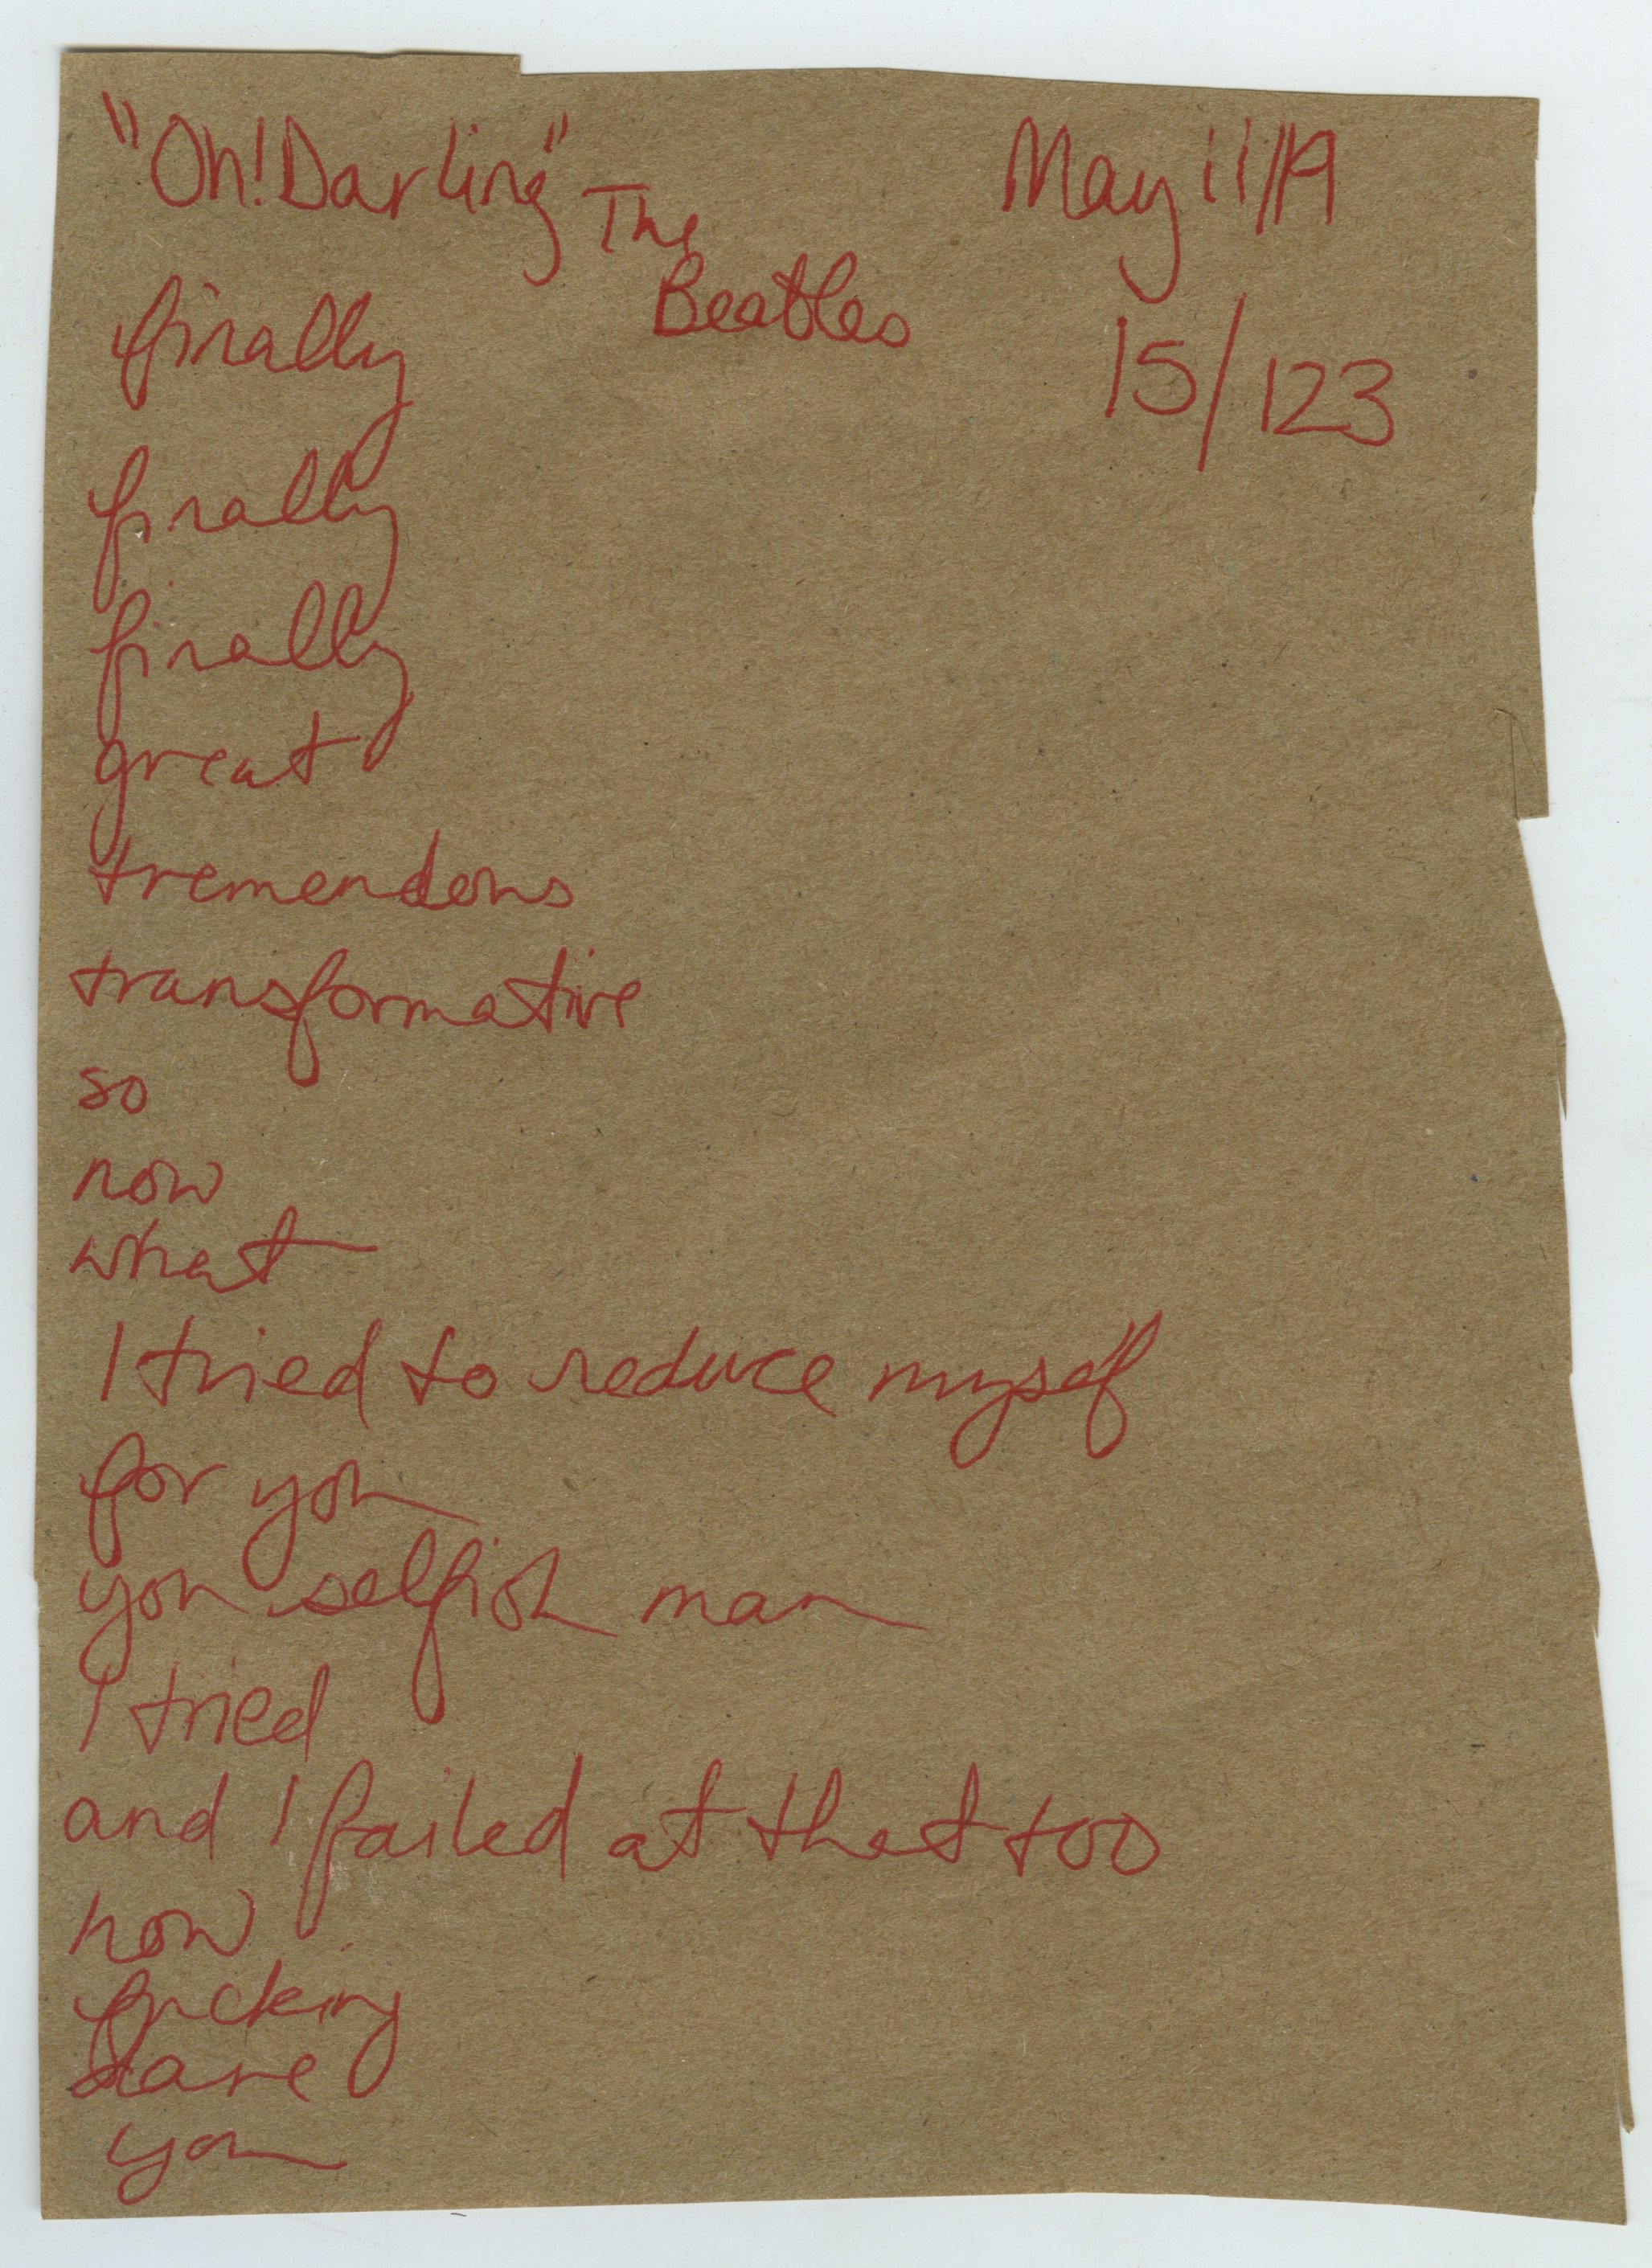 "Oh! Darling" The Beatles
May 11/19
15/123
finally
finally
finally
great
tremendous
transformative
so
now
what
I tried to reduce myself
for you
you selfish man
I tried
and I failed at that too
how
fucking
dare
you